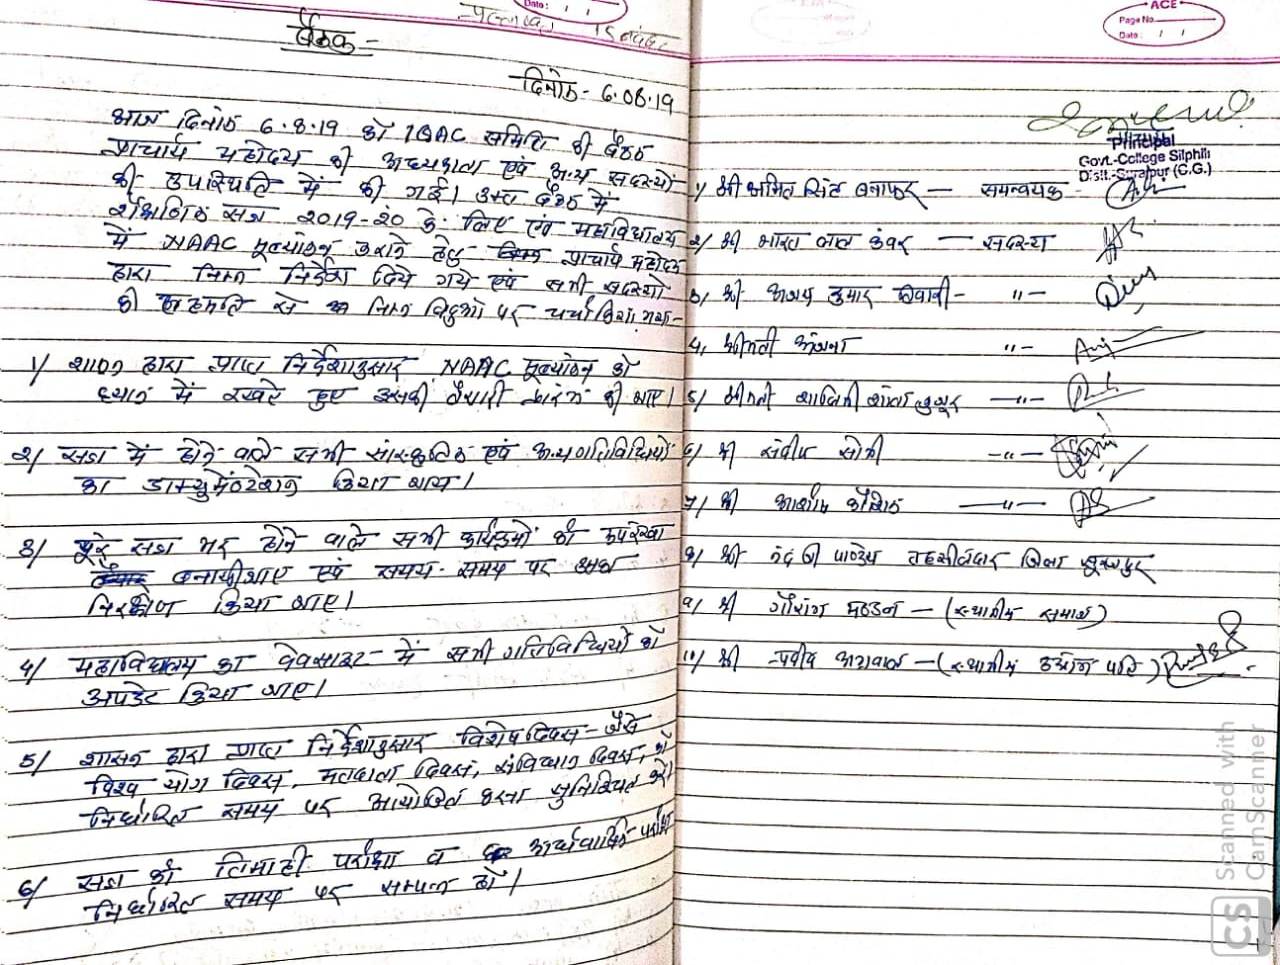 बैठक -
दिनांक - 6.08.19
आज दिनांक 6.8.19 को IQAC समिति की बैठक
प्राचार्य महोदय की अध्यक्षता एवं अन्य सदस्यों
की उपस्थिति में की गई। उक्त बैठक में
शैक्षणिक सत्र 2019-20 के लिए एवं महाविद्यालय
में NAAC मूल्यांकन कराने हेतु प्राचार्य महोदय
द्वारा निम्न निर्देश दिये गये एवं सभी सदस्यो
की सहमति से निम्न बिंदुओं पर चर्चा किया गया-
1/ शासन द्वारा प्राप्त निर्देशानुसार NAAC मूल्यांकन को
ध्यान में रखते हुए उसकी तैयारी प्रारंभ की जाए।
2/ सत्र में होने वाले सभी सांस्कृतिक एवं अन्य गतिविधियों
का डाक्युमेंटेशन किया जाय।
3/ पूरे सत्र भर होने वाले सभी कार्यक्रमों की रूपरेखा
बनायी जाए एवं समय-समय पर
निरीक्षण किया जाए।
4/ महाविद्यालय का वेबसाइट में सभी गतिविधियों को
अपडेट किया जाए।
5/ शासन द्वारा प्राप्त निर्देशानुसार विशेष दिवस - जैसे
विश्व योग दिवस, मतदाता दिवस, संविधान दिवस, को
निर्धारित समय पर आयोजित करना सुनिश्चित करें।
6/ सत्र की तिमाही परीक्षा व अर्धवार्षिक परीक्षा
निर्धारित समय पर सम्पन्न हो।
ACE
Page No.
Date: / /
Principal
Govt.-College Silphili
Distt.-Surajpur (C.G.)
1/ श्री अमित सिंह बनाफर — समन्वयक
2/ श्री भारत लाल कंवर — सदस्य
3/ श्री अजय कुमार तिवारी - "-
4, श्रीमती अंजना "-
5/ श्रीमती शालिनी शांता कुजूर — "-
6/ श्री संदीप सोनी - "-
7/ श्री आशीष कौशिक — "-
8/ श्री नंद जी पाण्डेय तहसीलदार जिला सूरजपुर
9/ श्री गौरांग मण्डल - (स्थानीय समाज)
10/ श्री प्रवीण अग्रवाल - (स्थानीय उद्योग पति)
Scanned with
CamScanner
CS